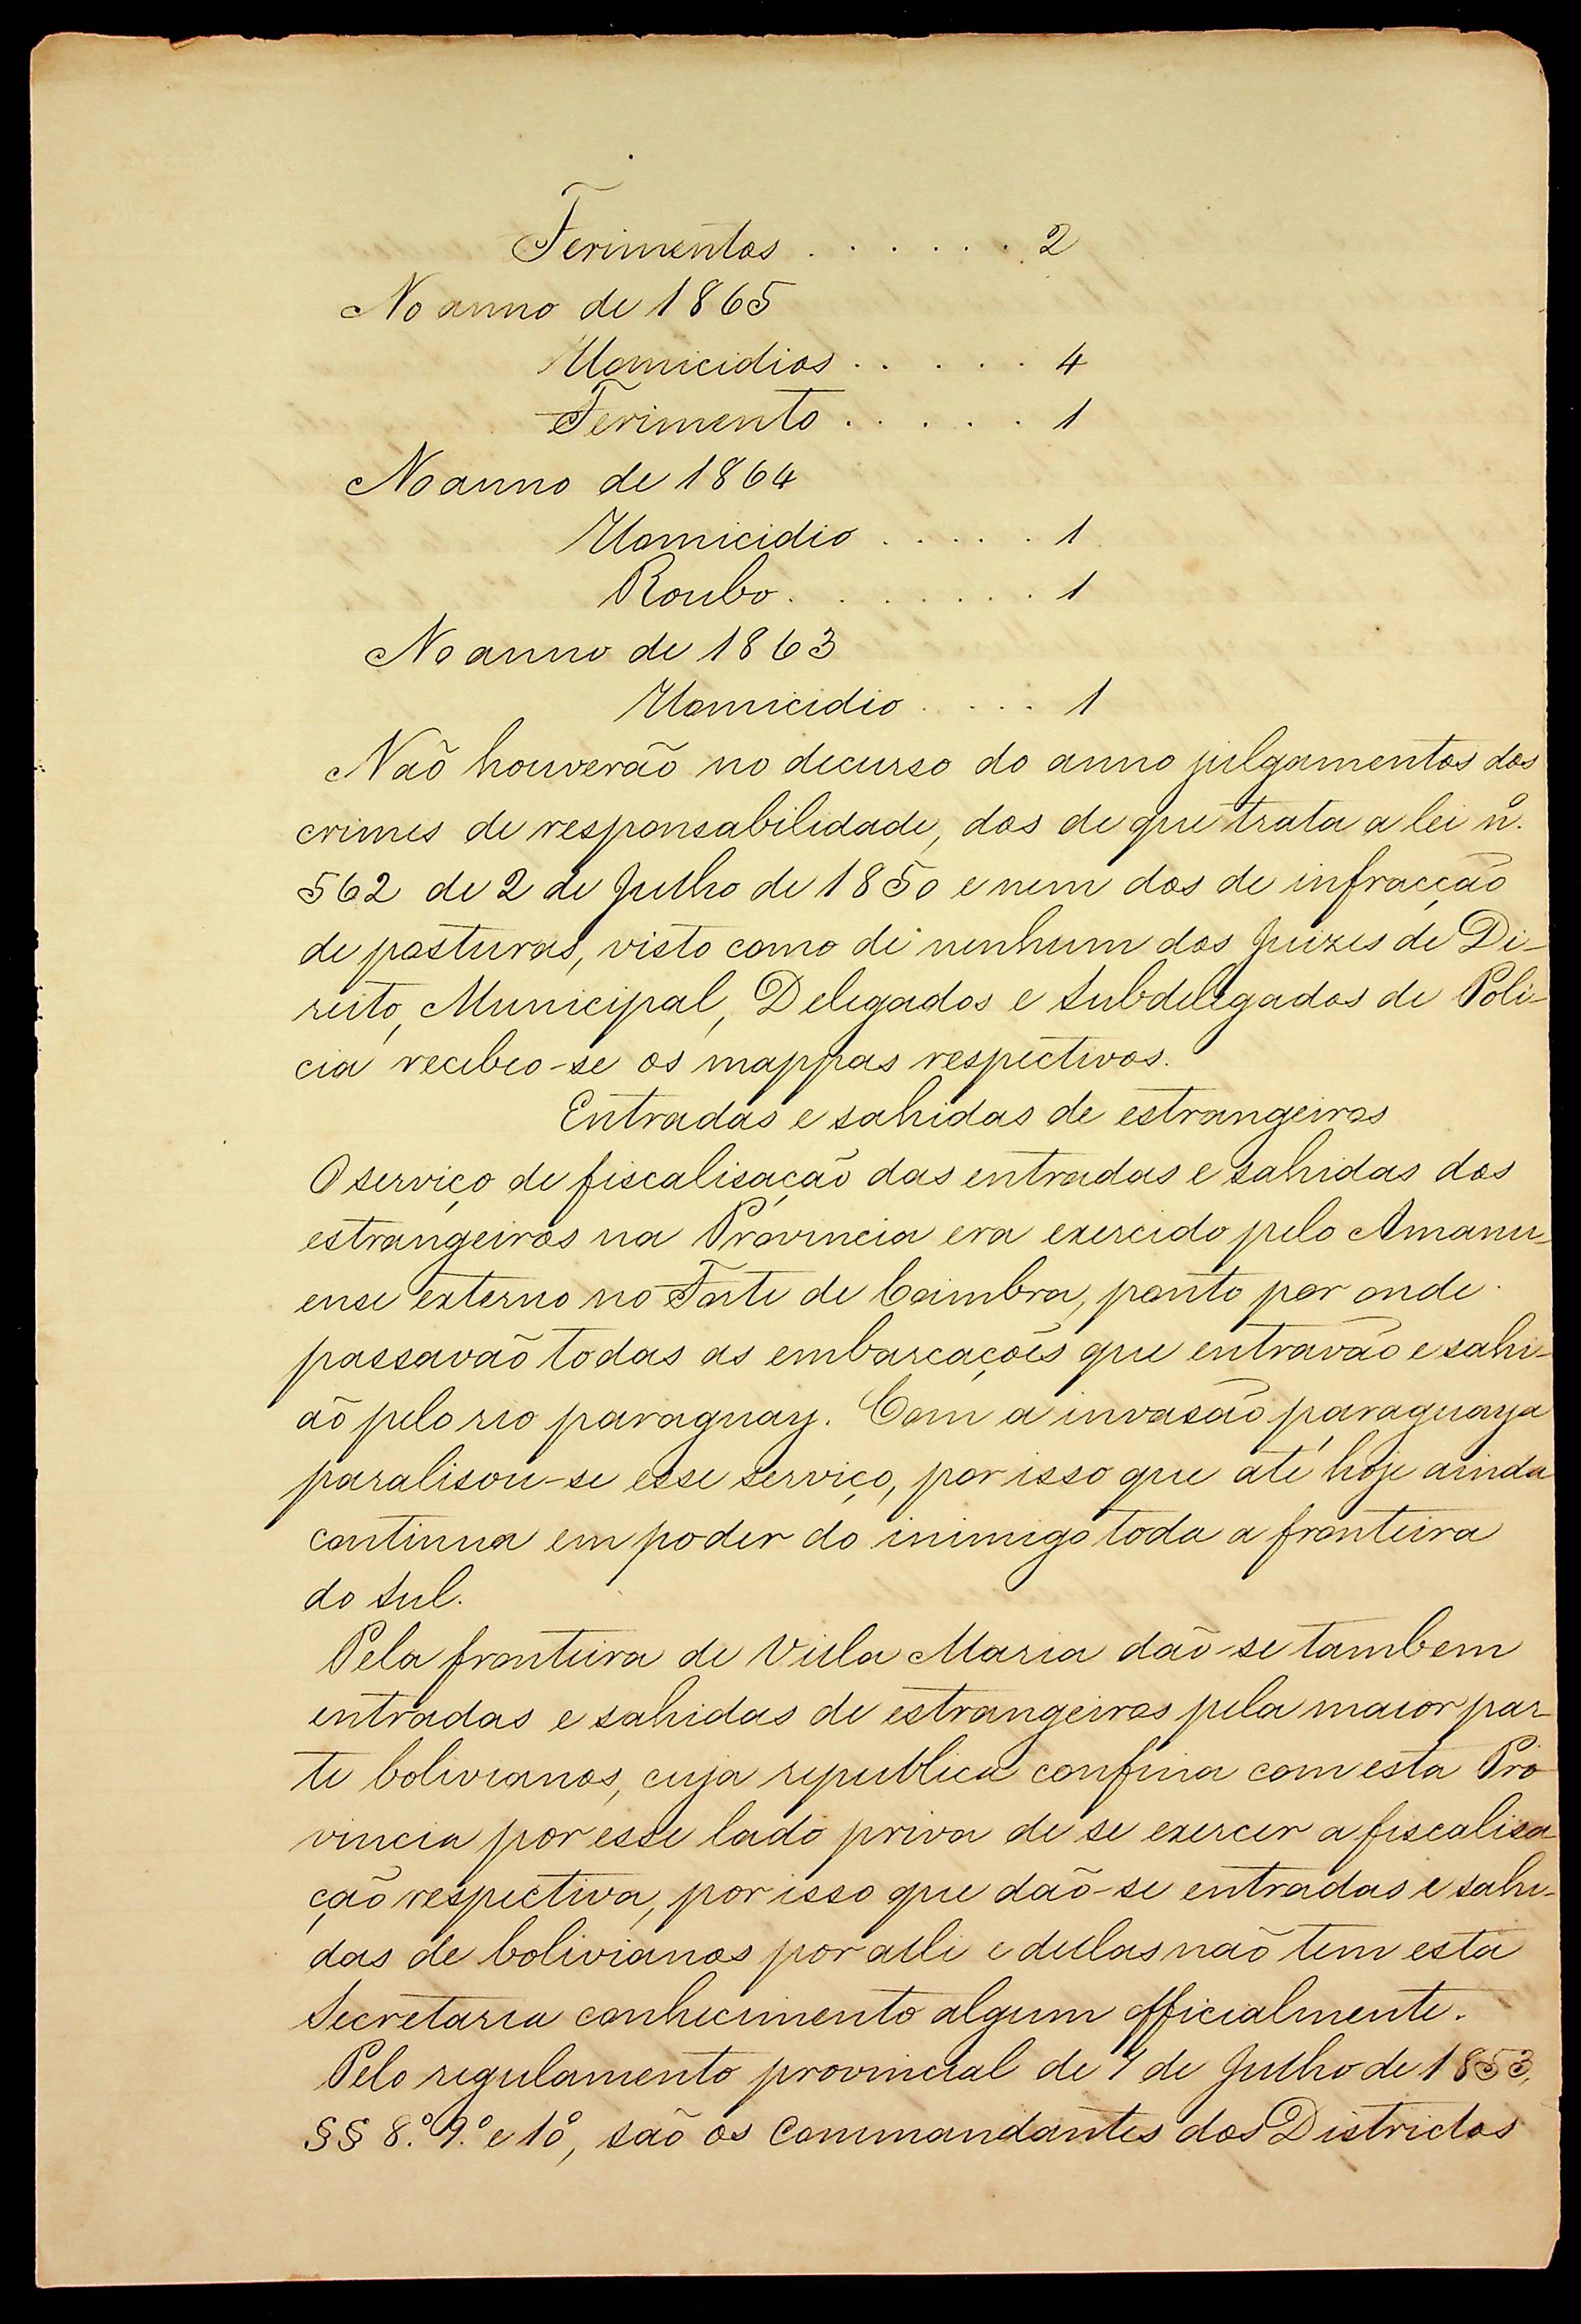 Ferimentos . . . . . . 2
No anno de 1865
Homicidios . . . . . 4
Ferimento . . . . . 1
No anno de 1864
Homicidio . . . . . 1
Roubo . . . . . . . 1
No anno de 1863
Homicidio . . . . 1
Naõ houverão no decurso do anno julgamentos dos
crimes de responsabilidade, dos de que trata a lei nº.
562 de 2 de Julho de 1850 e nem dos de infracção
de posturas, visto como de nenhum dos Juizes de Di-
reito, Municipal, Delegados e Subdelegados de Poli-
cia recebeo-se os mappas respectivos.
Entradas e sahidas de estrangeiros
O serviço de fiscalisação das entradas e sahidas dos
estrangeiros na Provincia era exercido pelo Amanu-
ense externo no Forte de Coimbra, ponto por onde
passavão todas as embarcações que entravão e sahi-
aõ pelo rio paraguay. Com a invasão paraguaya
paralisou-se esse serviço, por isso que até hoje ainda
continua em poder do inimigo toda a fronteira
do Sul.
Pela fronteira de Villa Maria dão-se tambem
entradas e sahidas de estrangeiros pela maior par-
te bolivianos, cuja republica confina com esta Pro
vincia por esse lado priva de se exercer a fiscalisa
ção respectiva, por isso que dão-se entradas e sahi-
das de bolivianos por alli e dellas não tem esta
Secretaria conhecimento algum officialmente.
Pelo regulamento provincial de 1 de Julho de 1853,
§§ 8.º 9.º e 10, são os Commandantes dos Districtos